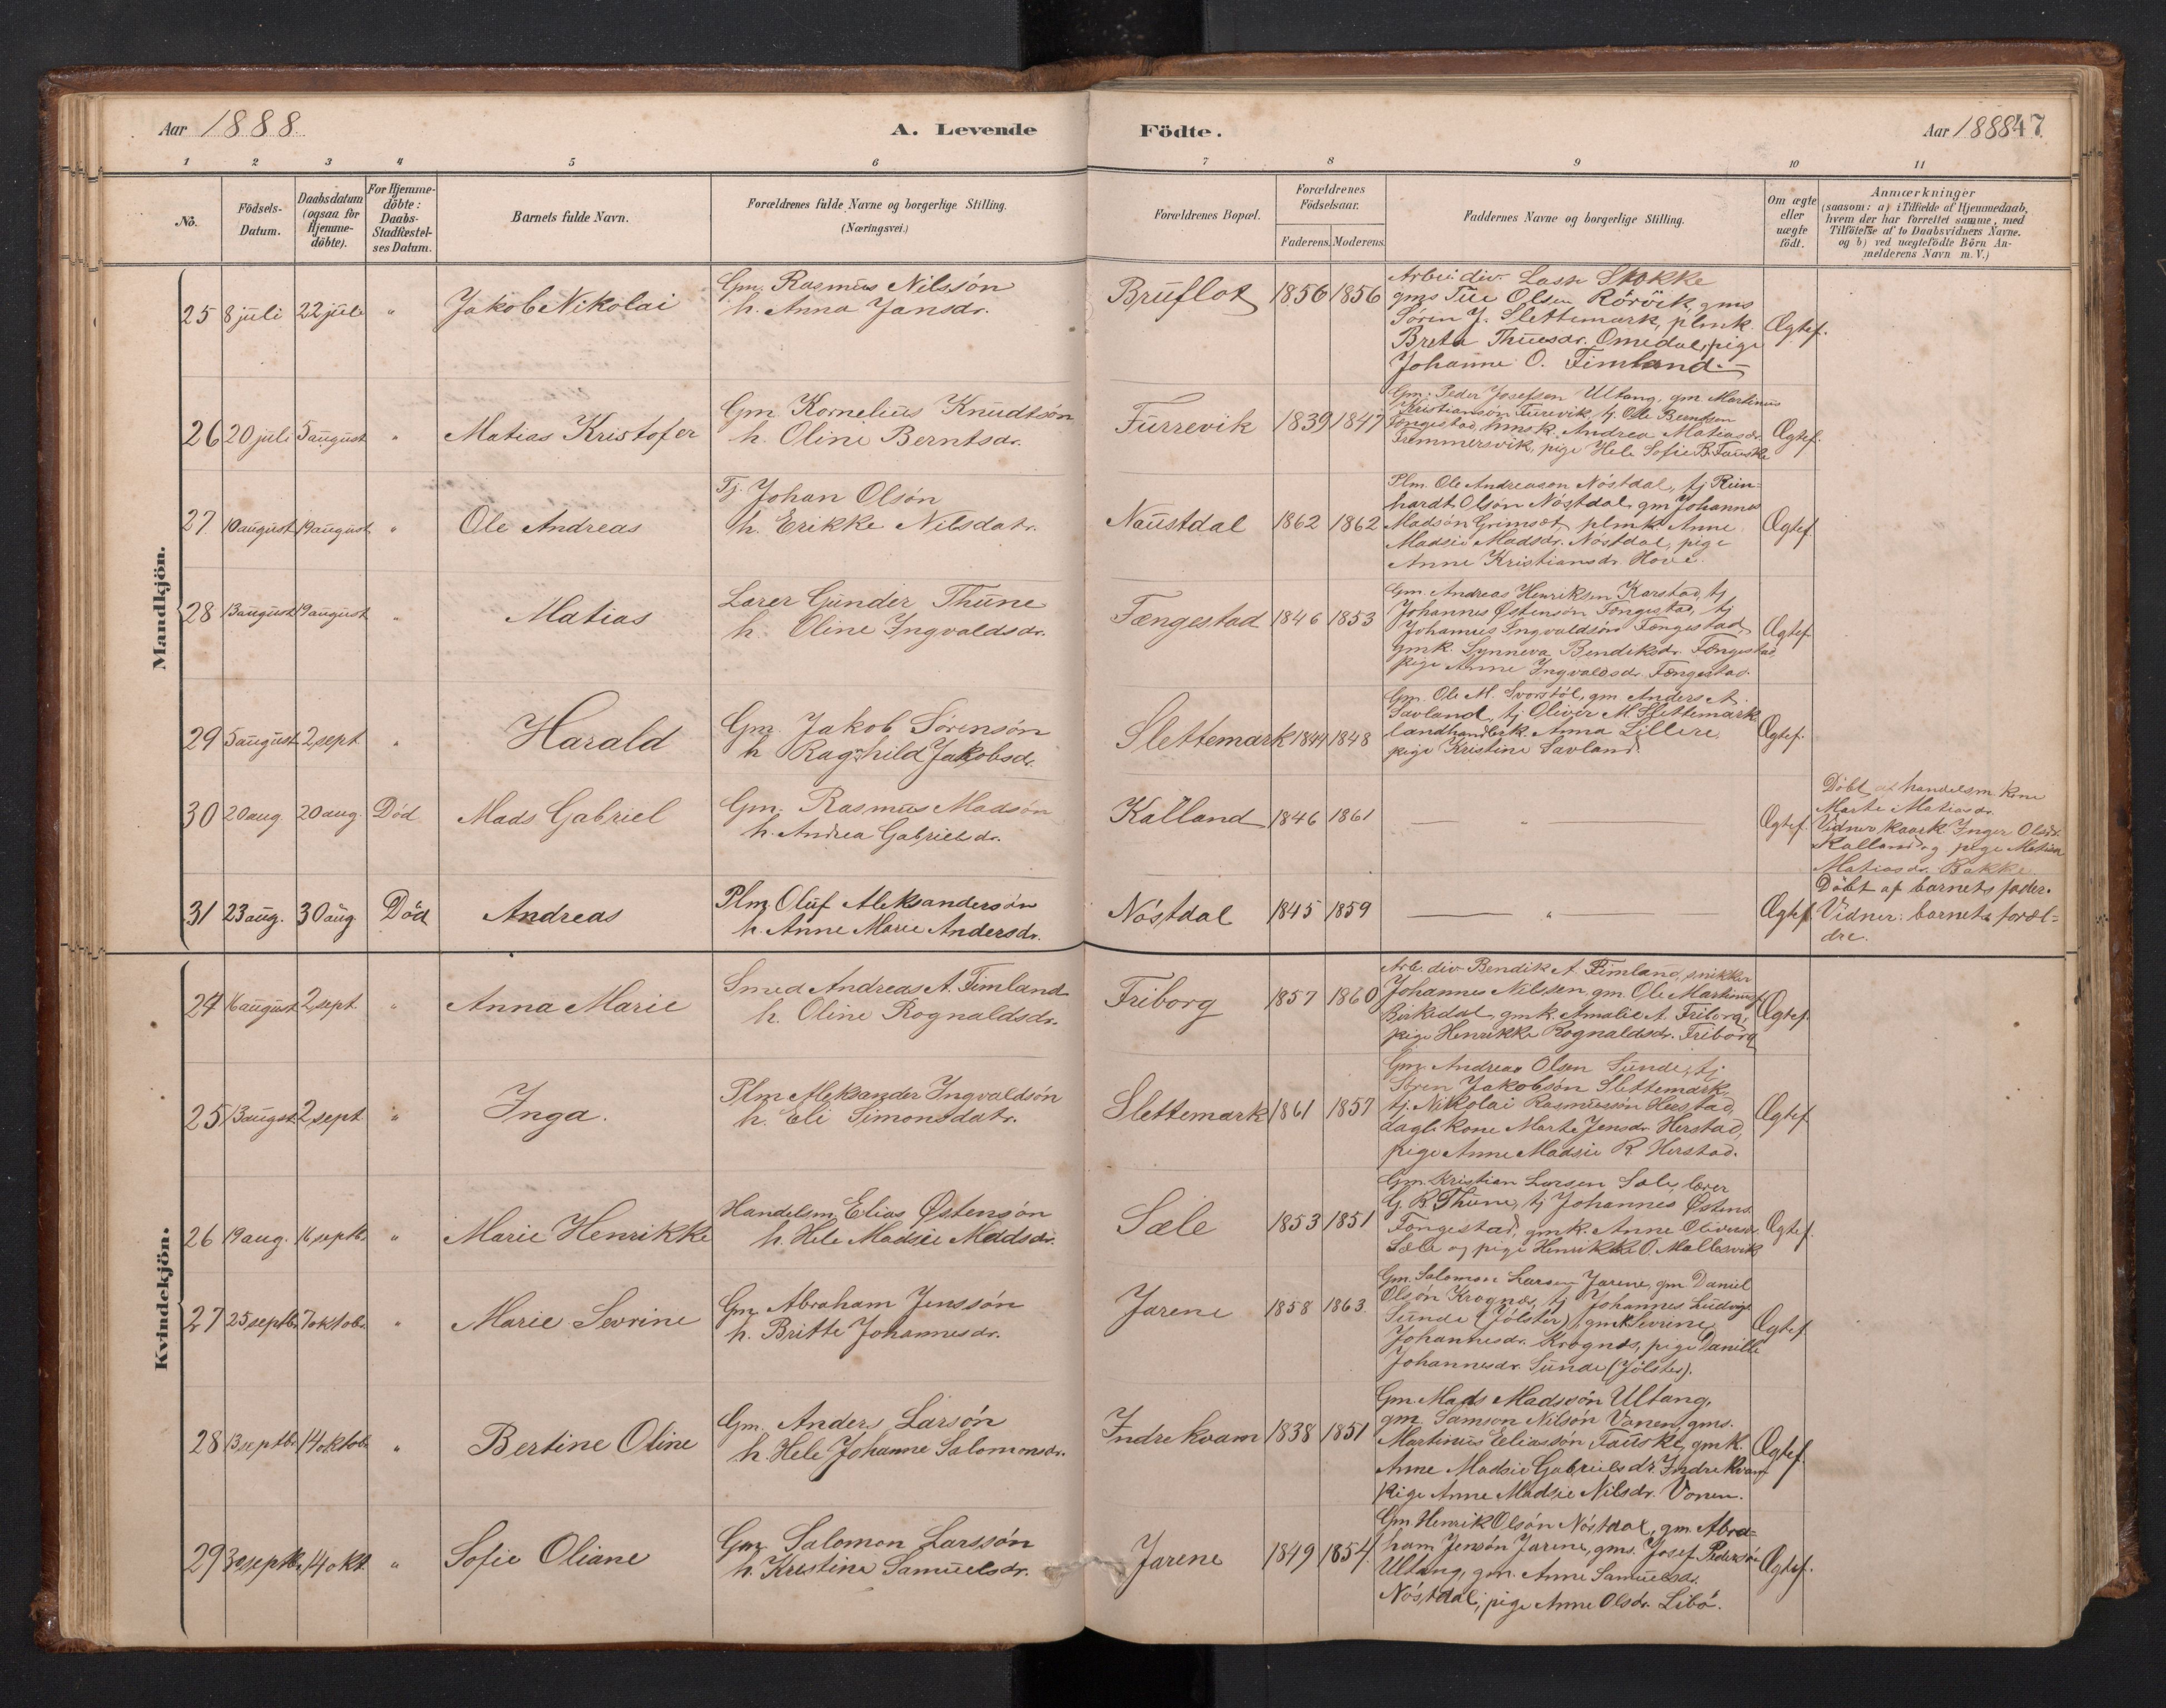 Aar 1888.
A. Levende Födte.
Aar 1888
47
1 2 3 4 5 6 7 8 9 10 11
No.
Födsels-
Datum.
Daabsdatum
(ogsaa for
Hjemme-
döbte).
For Hjemme-
döbte:
Daabs-
Stadfæstel-
ses Datum.
Barnets fulde Navn.
Forældrenes fulde Navne og borgerlige Stilling.
(Næringsvei.)
Forældrenes Bopæl.
Forældrenes
Födselsaar.
Faderens. Moderens.
Faddernes Navne og borgerlige Stilling.
Om ægte
eller
uægte
födt.
Anmærkninger
(saasom: a) i Tilfælde af Hjemmedaab,
hvem der har forrettet samme, med
Tilföielse af to Daabsvidners Navne.
og b) ved uægtefödte Börn An-
melderens Navn m. V.)
Mandkjön.
25 8 juli 22 juli " Jakob Nikolai
Gm. Rasmus Nilssön
h. Anna Jansdr.
Bruflot 1856 1856
Arbei. div. Lasse Stokke
gms Tue Olsen Rörvik, gms
Sören J. Slettemark, plmk.
Breta Thuesdr. Omedal, pige
Johanne O. Fimland.
Ægtef.
26 20 juli 5 august " Matias Kristofer
Gm Kornelius Knudtsön
h. Oline Berntsdr.
Furrevik 1839 1847
Gm. Peder Josefsen Ultang, gm Martinus
Kristiansön Furevik, tj. Ole Berntsen
Fængestad, Andrea Matiasdr.
Fremmersvik, pige Hele Sofie B. Fauske
Ægtef.
27 10 august 19 august " Ole Andreas
Tj. Johan Olsön
h. Erikke Nilsdatr.
Naustdal 1862 1862
Plm. Ole Andreason Nöstdal, tj Rein-
hardt Olsön Nöstdal, gm Johannes
Madsön Grimset, plmk. Anne
Madsie Madsdr. Nöstdal, pige
Anne Kristiansdr. Hove.
Ægtef.
28 13 august 19 august " Matias
Lærer Gunder Thune
h. Oline Ingvaldsdr.
Fængestad 1846 1853
Gm. Andreas Henriksen Karstad, tj
Johannes Østensön Fængestad, tj
Johannes Ingvaldsön Fængestad,
gmk. Synneva Bendiksdr. Fængestad,
pige Anne Ingvaldsdr. Fængestad.
Ægtef.
29 5 august 2 sept. " Harald
Gm Jakob Sörensön
h Ragnhild Jakobsdr.
Slettemark 1844 1848
Gm. Ole M. Svorstöl, gm. Anders A.
Savland, tj Oliver M. Slettemark
landhandlerk. Anna Lillere,
pige Kristine Savland.
Ægtef.
30 20 aug. 20 aug. Död Mads Gabriel
Gm. Rasmus Madsön
h. Andrea Gabrielsdr.
Kalland 1846 1861
— " —
Ægtef.
Döbt af handelsm. kone
Marte Matiasdr.
Vidner kaark Inger Olsdr.
Kalland og pige Matisa
Matiasdr. Bakke
31 23 aug. 30 aug. Död Andreas
Plm Oluf Aleksandersön
h. Anne Marie Andersdr.
Nöstdal 1845 1859
— " —
Ægtef.
Döbt af barnets fader.
Vidner: barnets foræl-
dre.
Kvindekjön.
24 16 august 2 sept. " Anna Marie
Smed Andreas A. Fimland
h. Oline Rognaldsdr.
Friborg 1857 1860
Arb. div. Bendik A. Fimland, snikker
Johannes Nilssen, gm. Ole Martinus
Birkedal, gmk. Amalie A. Friborg,
pige Henrikke Rognaldsdr. Friborg
Ægtef.
25 13 august 2 sept " Inga.
Plm Aleksander Ingvaldsön
h. Eli Simonsdatr.
Slettemark 1861 1857
Gm. Andreas Olsen Sunde, tj
Sören Jakobsön Slettemark,
tj. Nikolai Rasmussön Herstad,
dagl. kone Marte Jensdr. Herstad,
pige Anne Madsie R. Herstad.
Ægtef.
26 19 aug. 16 septb. " Marie Henrikke
Handelsm. Elias Østensön
h. Hele Madsie Madsdr.
Sæle 1853 1851
Gm. Kristian Larsen Sæle, lærer
G. R. Thune, tj Johannes Østens.
Fængestad, gmk. Anne Oliversdr.
Sæle og pige Henrikke O. Mallesvik
Ægtef.
27 25 septb. 7 oktober " Marie Sevrine
Gm. Abraham Jenssön
h. Britte Johannesdr.
Jarene 1858 1863.
Gm. Salomon Larsen Jarene, gm Daniel
Olsön Krognæs, tj Johannes Ludvigs
Sunde (Jölster), gmk Sevrine
Johannesdr. Krognæs, pige Danille
Johannesdr. Sunde (Jölster).
Ægtef.
28 13 septb. 14 oktob. " Bertine Oline
Gm. Anders Larsön
h. Hele Johanne Salomonsdr.
Indrekvam 1838 1851
Gm. Mads Madssön Ultang,
gm. Samson Nilsön Vonen, gms.
Martinus Eliassön Fauske, gmk.
Anne Madsie Gabrielsdr. Indrekvam
pige Anne Madsie Nilsdr. Vonen.
Ægtef.
29 30 septb. 14 okt. " Sofie Oliane
Gm Salomon Larssön
h. Kristine Samuelsdr.
Jarene 1849 1854
Gm. Henrik Olsön Nöstdal, gm. Abra-
ham Jensön Jarene, gms. Josef Pedersön
Ultang, gm. Anne Samuelsdr.
Nöstdal, pige Anne Olsdr. Libö.
Ægtef.